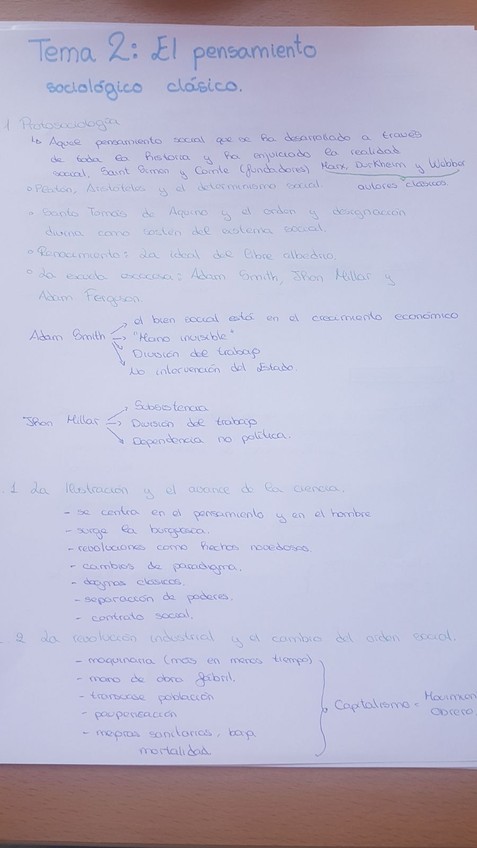 Tema 2: El pensamiento
sociológico clásico.
1 Protosociología
↳ Aquel pensamiento social que se ha desarrollado a través
de toda la historia y ha enjuiciado la realidad
social, Saint Simon y Comte (fundadores) Marx, Durkheim y Webber
autores clásicos.
◦ Platón, Aristóteles y el determinismo social.
◦ Santo Tomás de Aquino y el orden y designación
divina como sostén del sistema social.
◦ Renacimiento: La ideal del libre albedrío.
◦ La escuela escocesa: Adam Smith, Jhon Millar y
Adam Ferguson.
Adam Smith → el bien social está en el crecimiento económico
→ "Mano invisible"
→ División del trabajo
→ No intervención del Estado.
Jhon Millar → Subsistencia
→ División del trabajo
→ Dependencia no política.
.1 La Ilustración y el avance de la ciencia.
- se centra en el pensamiento y en el hombre
- surge la burguesía.
- revoluciones como hechos novedosos.
- cambios de paradigma.
- dogmas clásicos.
- separación de poderes.
- contrato social.
. 2 La revolución industrial y el cambio del orden social.
- maquinaria (más en menos tiempo)
- mano de obra fabril.
- población
- mejoras sanitarias, baja
mortalidad
Capitalismo = Movimien
Obrero